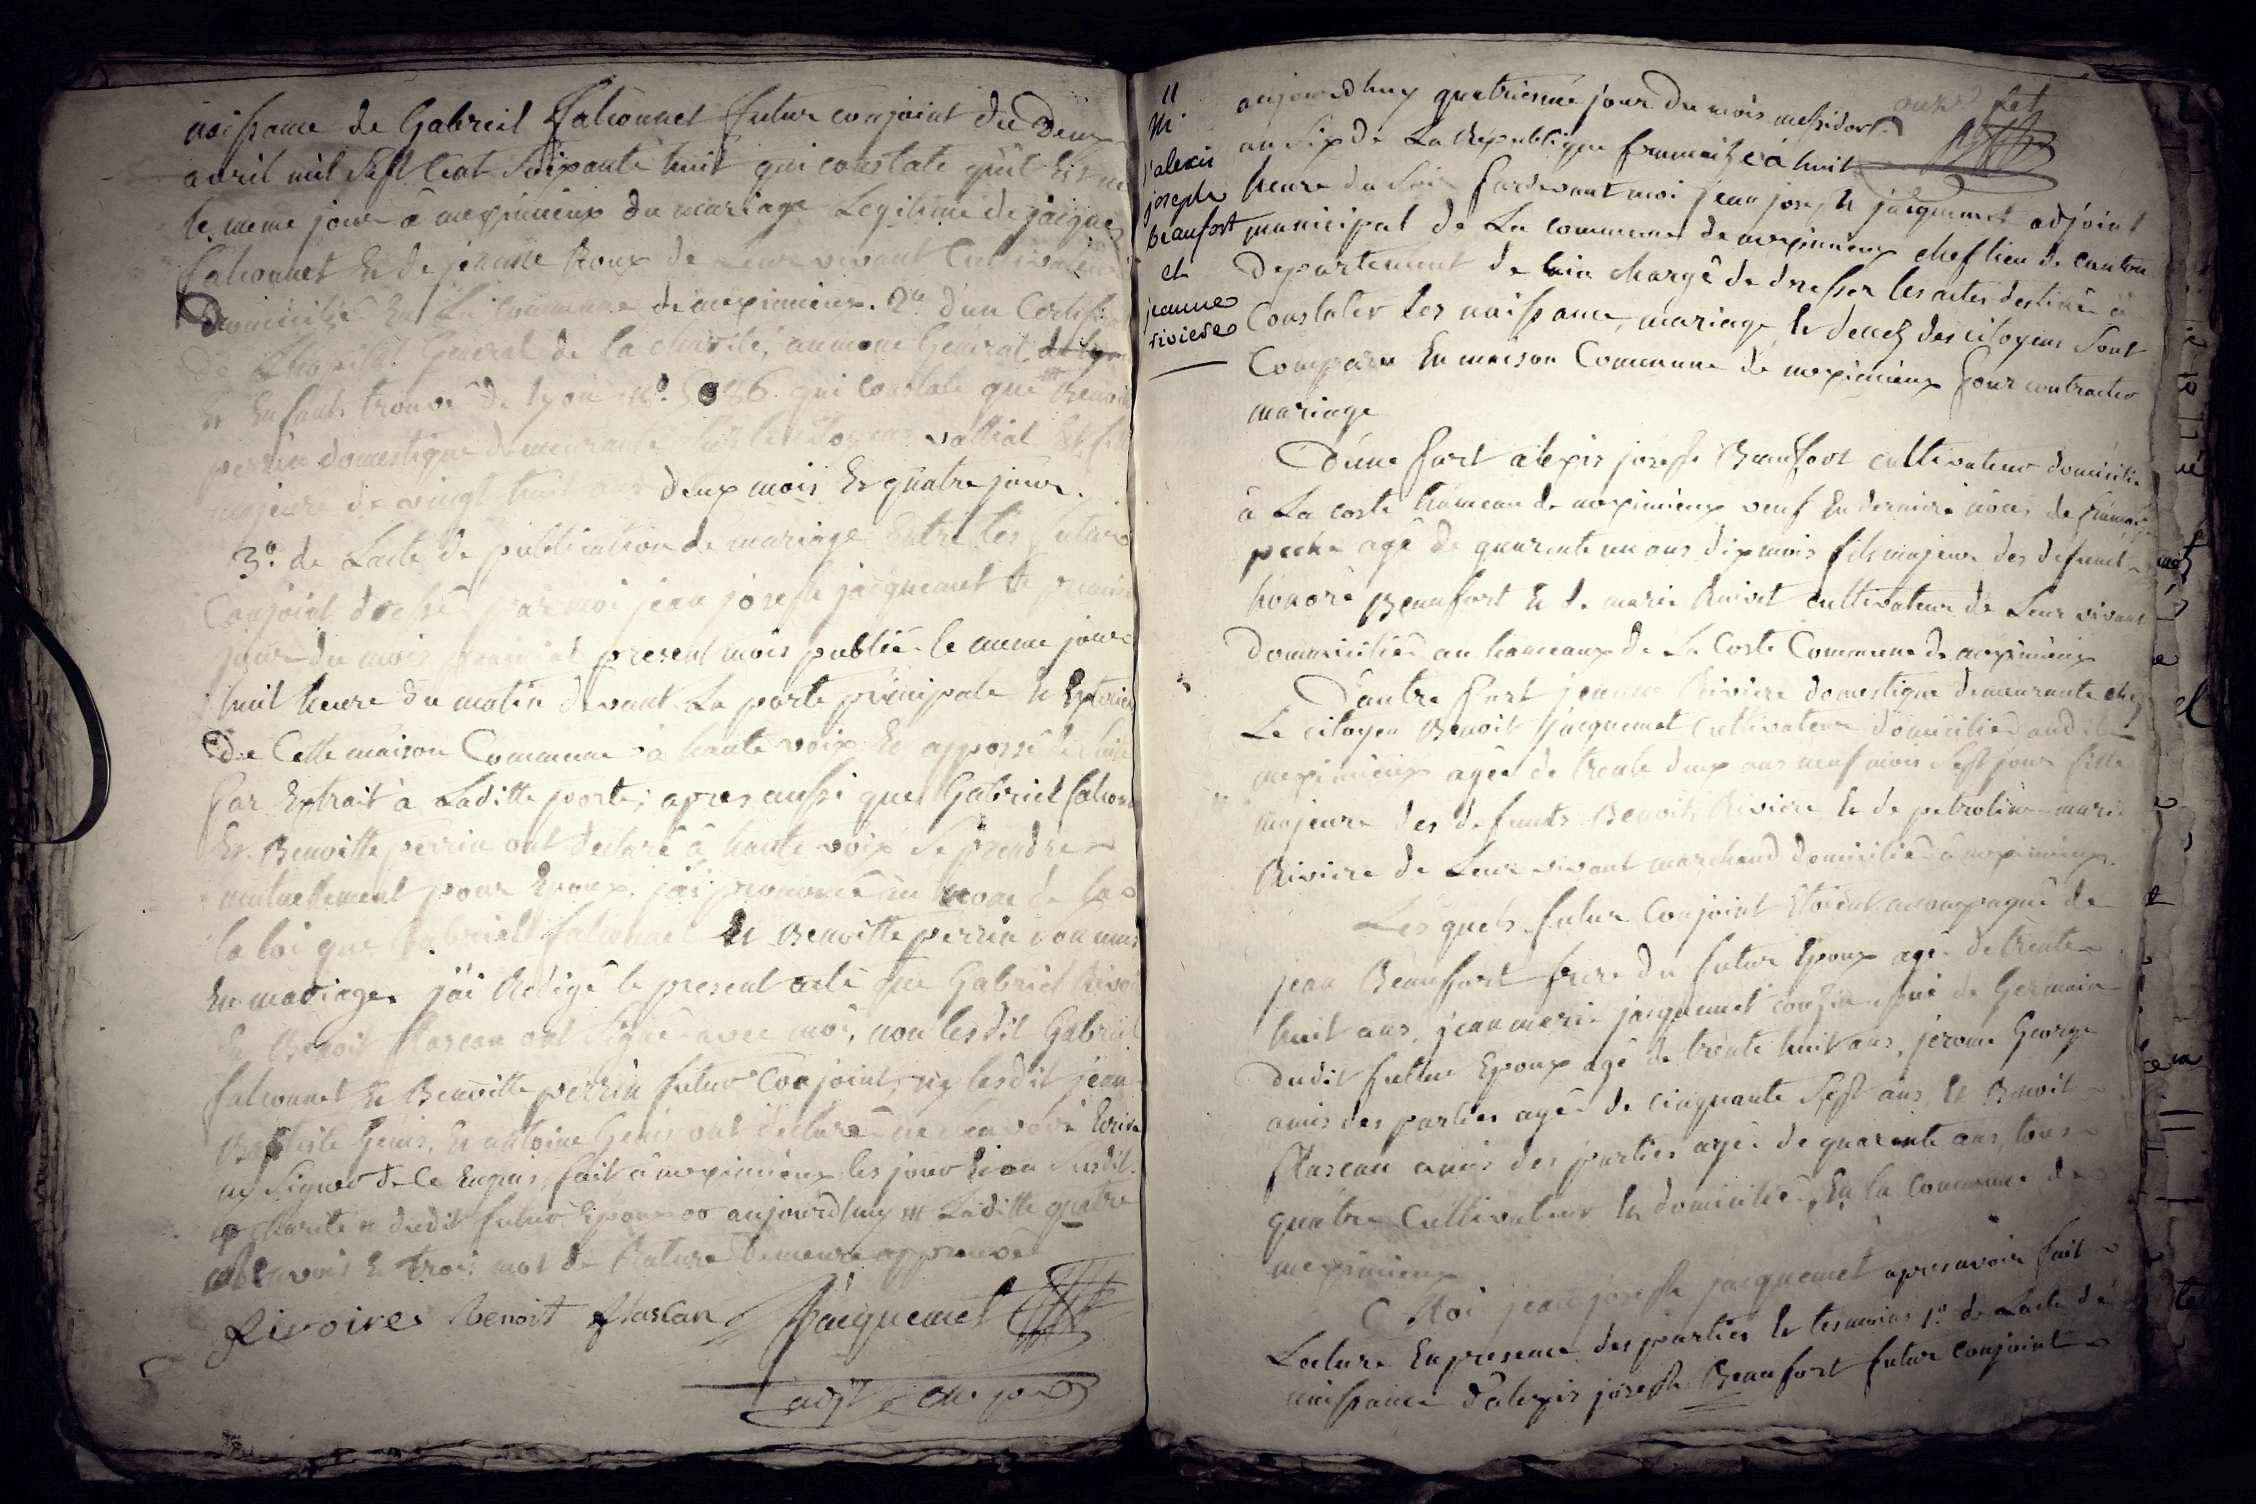 naissance de Gabriel falconnet futur conjoint du deux
avril mil Sept Cent Soixante huit qui constate qu'il Est né
le meme jour â meximieux du mariage Legitime de jacque
falconnet Et de jeanne Roux de Leur vivant Cultivateur
Domicilié En La Commune de meximieux. 2º d'un Certificat
de L'hopital General de la charité, aumone General de Lyon
Et Enfants trouvé de Lyon nº qui constate que Benoite
perrin domestique demeurante le citoyen valliat Est fille
majeure de vingt huit ans deux mois Et quatre jour.
3º. de Lacte de publication de mariage Entre les futur
Conjoint dressé par moi jean joseph jacquemet le premier
jour du mois present mois publié le meme jour
huit heure du matin devant La porte principale Et Exterieur
de Cette maison Commune à haute voix Et apposé
par Extrait à Laditte porte; apres aussi que Gabriel falconnet
Et Benoitte perrin ont declaré â haute voix Se prendre
mutuellement pour Epoux, j'ai prononcé au nom de la
la loi que Gabriel falconnet Et Benoitte perrin sont unis
En mariage. j'ai Redigé le present acte que Gabriel Rivoire
Et Benoit flascan ont Signé avec moi, non lesdit Gabriel
falconnet Et Benoitte perrin futur Conjoint, ny lesdit jean
Baptiste Genis, Et antoine Genis ont declaré ne Savoir Ecrire
ny Signer de Ce Enquis, fait â meximieux les jour Et an Susdit.
dudit futur Epoux aujourdhuy Laditte quatre
Renvois Et trois mot de Rature demeure approuvée
Rivoire Benoit flascan Jacquemet
adjt
11
M.
d'alexis
joseph
beaufort
et
jeanne
riviere
aujourdhuy quatrieme jour du mois messidor
an Six de La Republique francaise à huit
heure du Soir pardevant moi jean joseph jacquemet adjoint
municipal de La commune de meximieux chef lieu de canton
Departement de lain chargé de dresser les actes destiné â
Constater les naissance, mariage, Et deces des citoyens Sont
Comparu En maison Commune de meximieux pour contracter
mariage
D'une part alexis joseph Beaufort cultivateur domicilié
â La coste hameau de meximieux veuf En derniere noces de
peche agé de quarante un ans dix mois fils majeur des defunt
honoré Beaufort Et de marie Ruivet cultivateur de Leur vivant
Domicilié au hameaux de La Coste Commune de meximieux
D'autre part jeanne Riviere domestique demeurante chez
Le citoyen Benoit jacquemet Cultivateur domicilié audit
meximieux agée de trente deux ans neuf mois Sept jour fille
majeure des defunts Benoit Riviere Et de petroline marie
Riviere de Leur vivant marchand domicilié â meximieux.
Lesquels futur Conjoint Etoient accompagné de
jean Beaufort frere du futur Epoux agé de trente
huit ans, jean marie jacquemet cousin issué de Germain
dudit futur Epoux agé de trente huit ans, jerome George
amis des parties agé de cinquante Sept ans, Et Benoit
flascan amis des parties agé de quarante ans, tous
quatre Cultivateur Et domicilié En la Commune de
meximieux
Moi jean joseph jacquemet apres avoir fait
Lecture En presence des parties Et temoins 1º. de Lacte de
naissance d'alexis joseph Beaufort futur conjoint